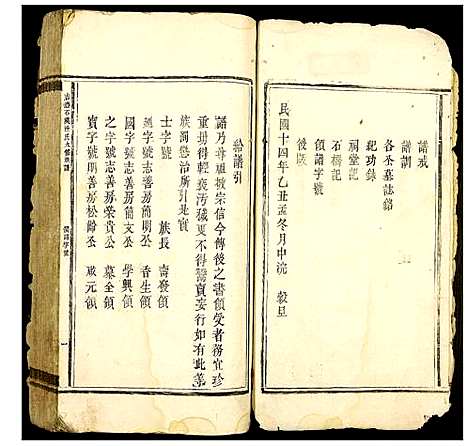 譜戒
譜訓
各公墓誌銘
紀功錄
祠堂記
石橋記
領譜字號
後跋
民國十四年乙丑孟冬月中浣　穀旦
給譜引
譜乃尊祖敬宗信今傳後之書領受者務宜珍
重毋得輕褻汚穢更不得鬻賣妄行如有此等
族濁懲治所引是實
士字號　族長　壽發領
刻字號志善房簡明公　香生領
國字號志善房簡文公　學興領
之字號志善房榮貴公　墓全領
寶字號明善房松齡公　眾元領
領譜字號
一